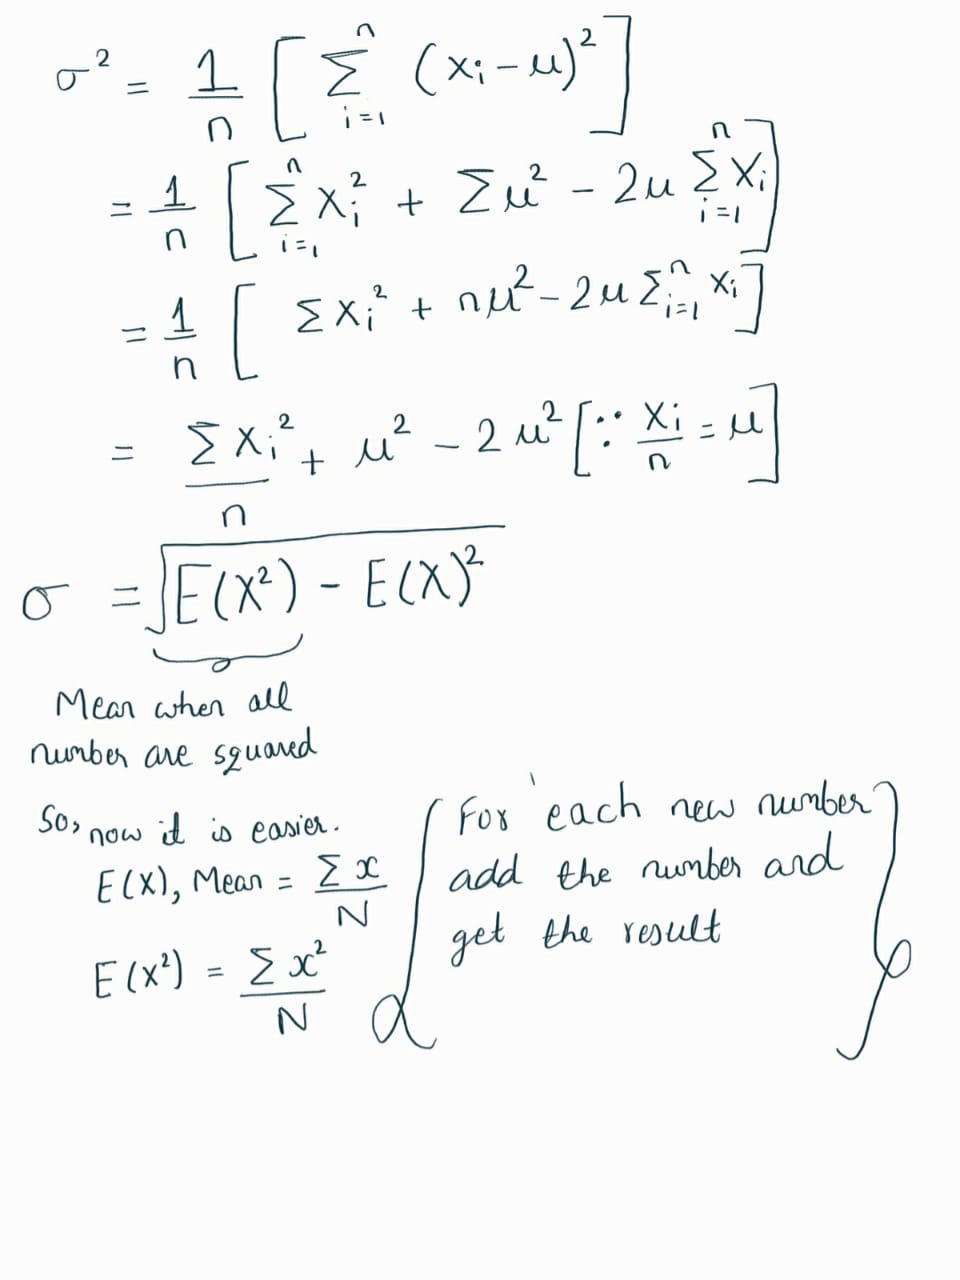 σ² = 1/n [ Σ_{i=1}^{n} (x_i − μ)² ]
= 1/n [ Σ_{i=1}^{n} x_i² + Σμ² − 2μ Σ_{i=1}^{n} x_i ]
= 1/n [ Σx_i² + nμ² − 2μ Σ_{i=1}^{n} x_i ]
= Σx_i²/n + μ² − 2μ² [∵ x_i/n = μ]
σ = √(E(X²) − E(X)²)
Mean when all
number are squared
So, now it is easier.
E(X), Mean = Σx/N
E(x²) = Σx²/N
For each new number
add the number and
get the result